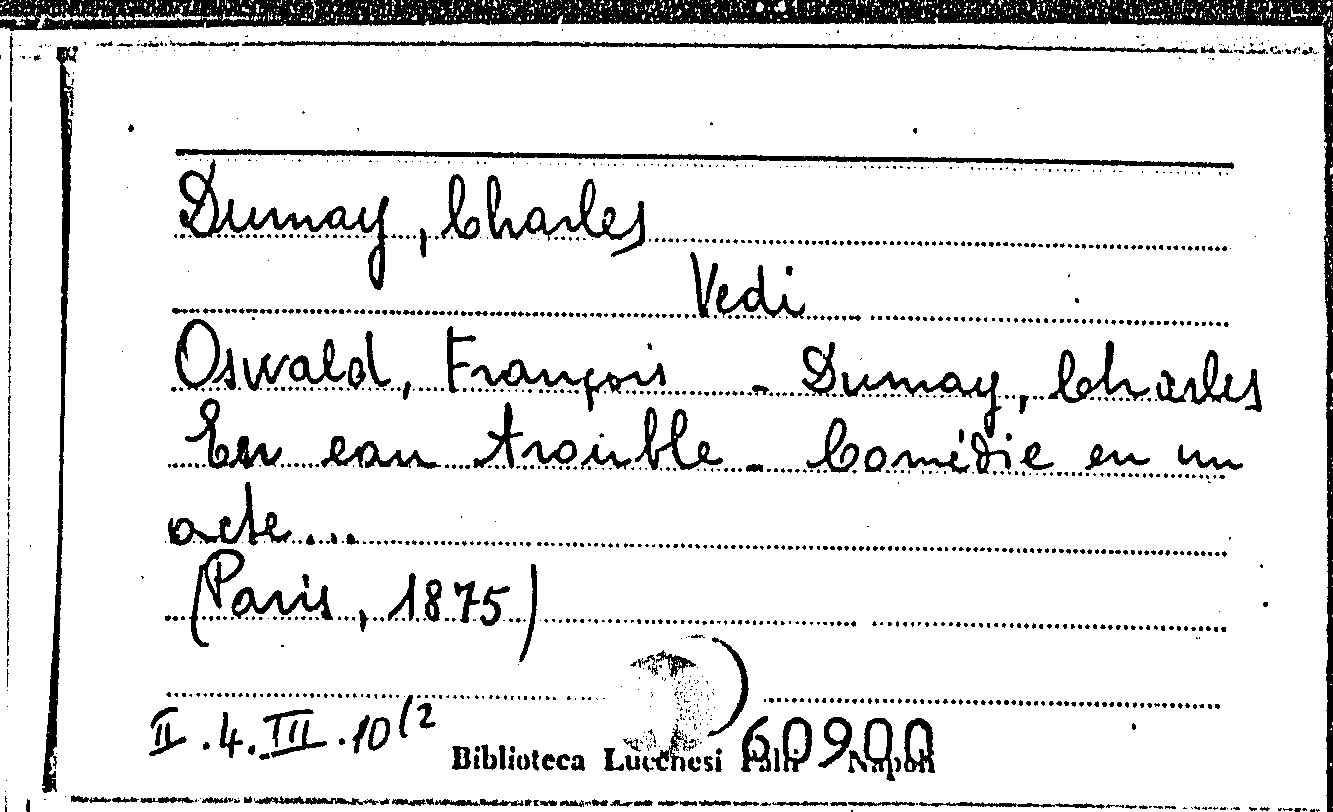 Dumay, Charles
Vedi
Oswald, François - Dumay, Charles
En eau trouble - Comédie en un
acte...
(Paris, 1875)
II.4.III.10(2
60900
Biblioteca Lucchesi Palli Napoli